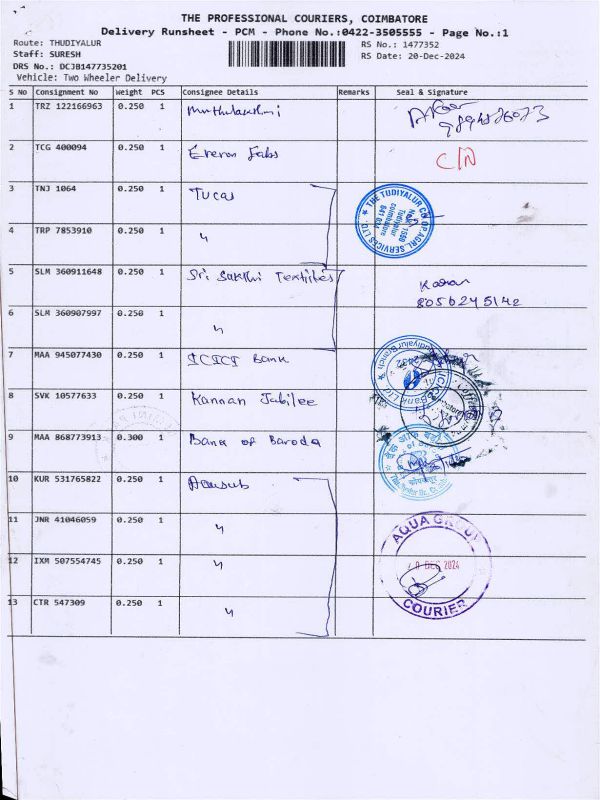 THE PROFESSIONAL COURIERS, COIMBATORE
Delivery Runsheet - PCM - Phone No.:0422-3505555 - Page No.:1
Route: THUDIYALUR RS No.: 1477352
Staff: SURESH RS Date: 20-Dec-2024
DRS No.: DCJB147735201
Vehicle: Two Wheeler Delivery
S No Consignment No Weight PCS Consignee Details Remarks Seal & Signature
1 TRZ 122166963 0.250 1 Muthulakshmi
2 TCG 400094 0.250 1 Fabs C/N
3 TNJ 1064 0.250 1 Tucas
THE TUDIYALUR CO OP AGRL SERVICES LTD.
Tudiyalur
Coimbatore
641 034
4 TRP 7853910 0.250 1 "
5 SLM 360911648 0.250 1 Sri Sakthi Textiles
8056245142
6 SLM 360907997 0.250 1 "
7 MAA 945077430 0.250 1 ICICI Bank
ICICI Bank Ltd
Tudiyalur Branch
8 SVK 10577633 0.250 1 Kannan Jubilee
9 MAA 868773913 0.300 1 Bank of Baroda
10 KUR 531765822 0.250 1 Aquasub
11 JNR 41046059 0.250 1 "
AQUA GROUP
12 IXM 507554745 0.250 1 "
DEC 2024
13 CTR 547309 0.250 1 "
COURIER